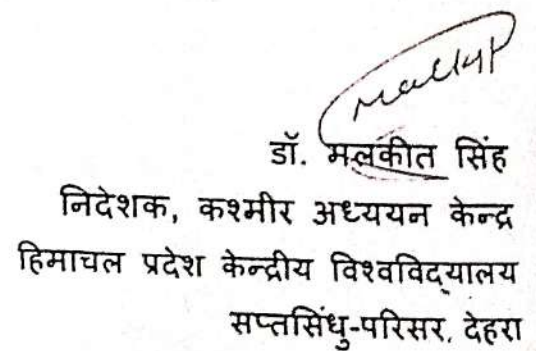 डॉ. मलकीत सिंह
निदेशक, कश्मीर अध्ययन केन्द्र
हिमाचल प्रदेश केन्द्रीय विश्वविद्यालय
सप्तसिंधु-परिसर, देहरा